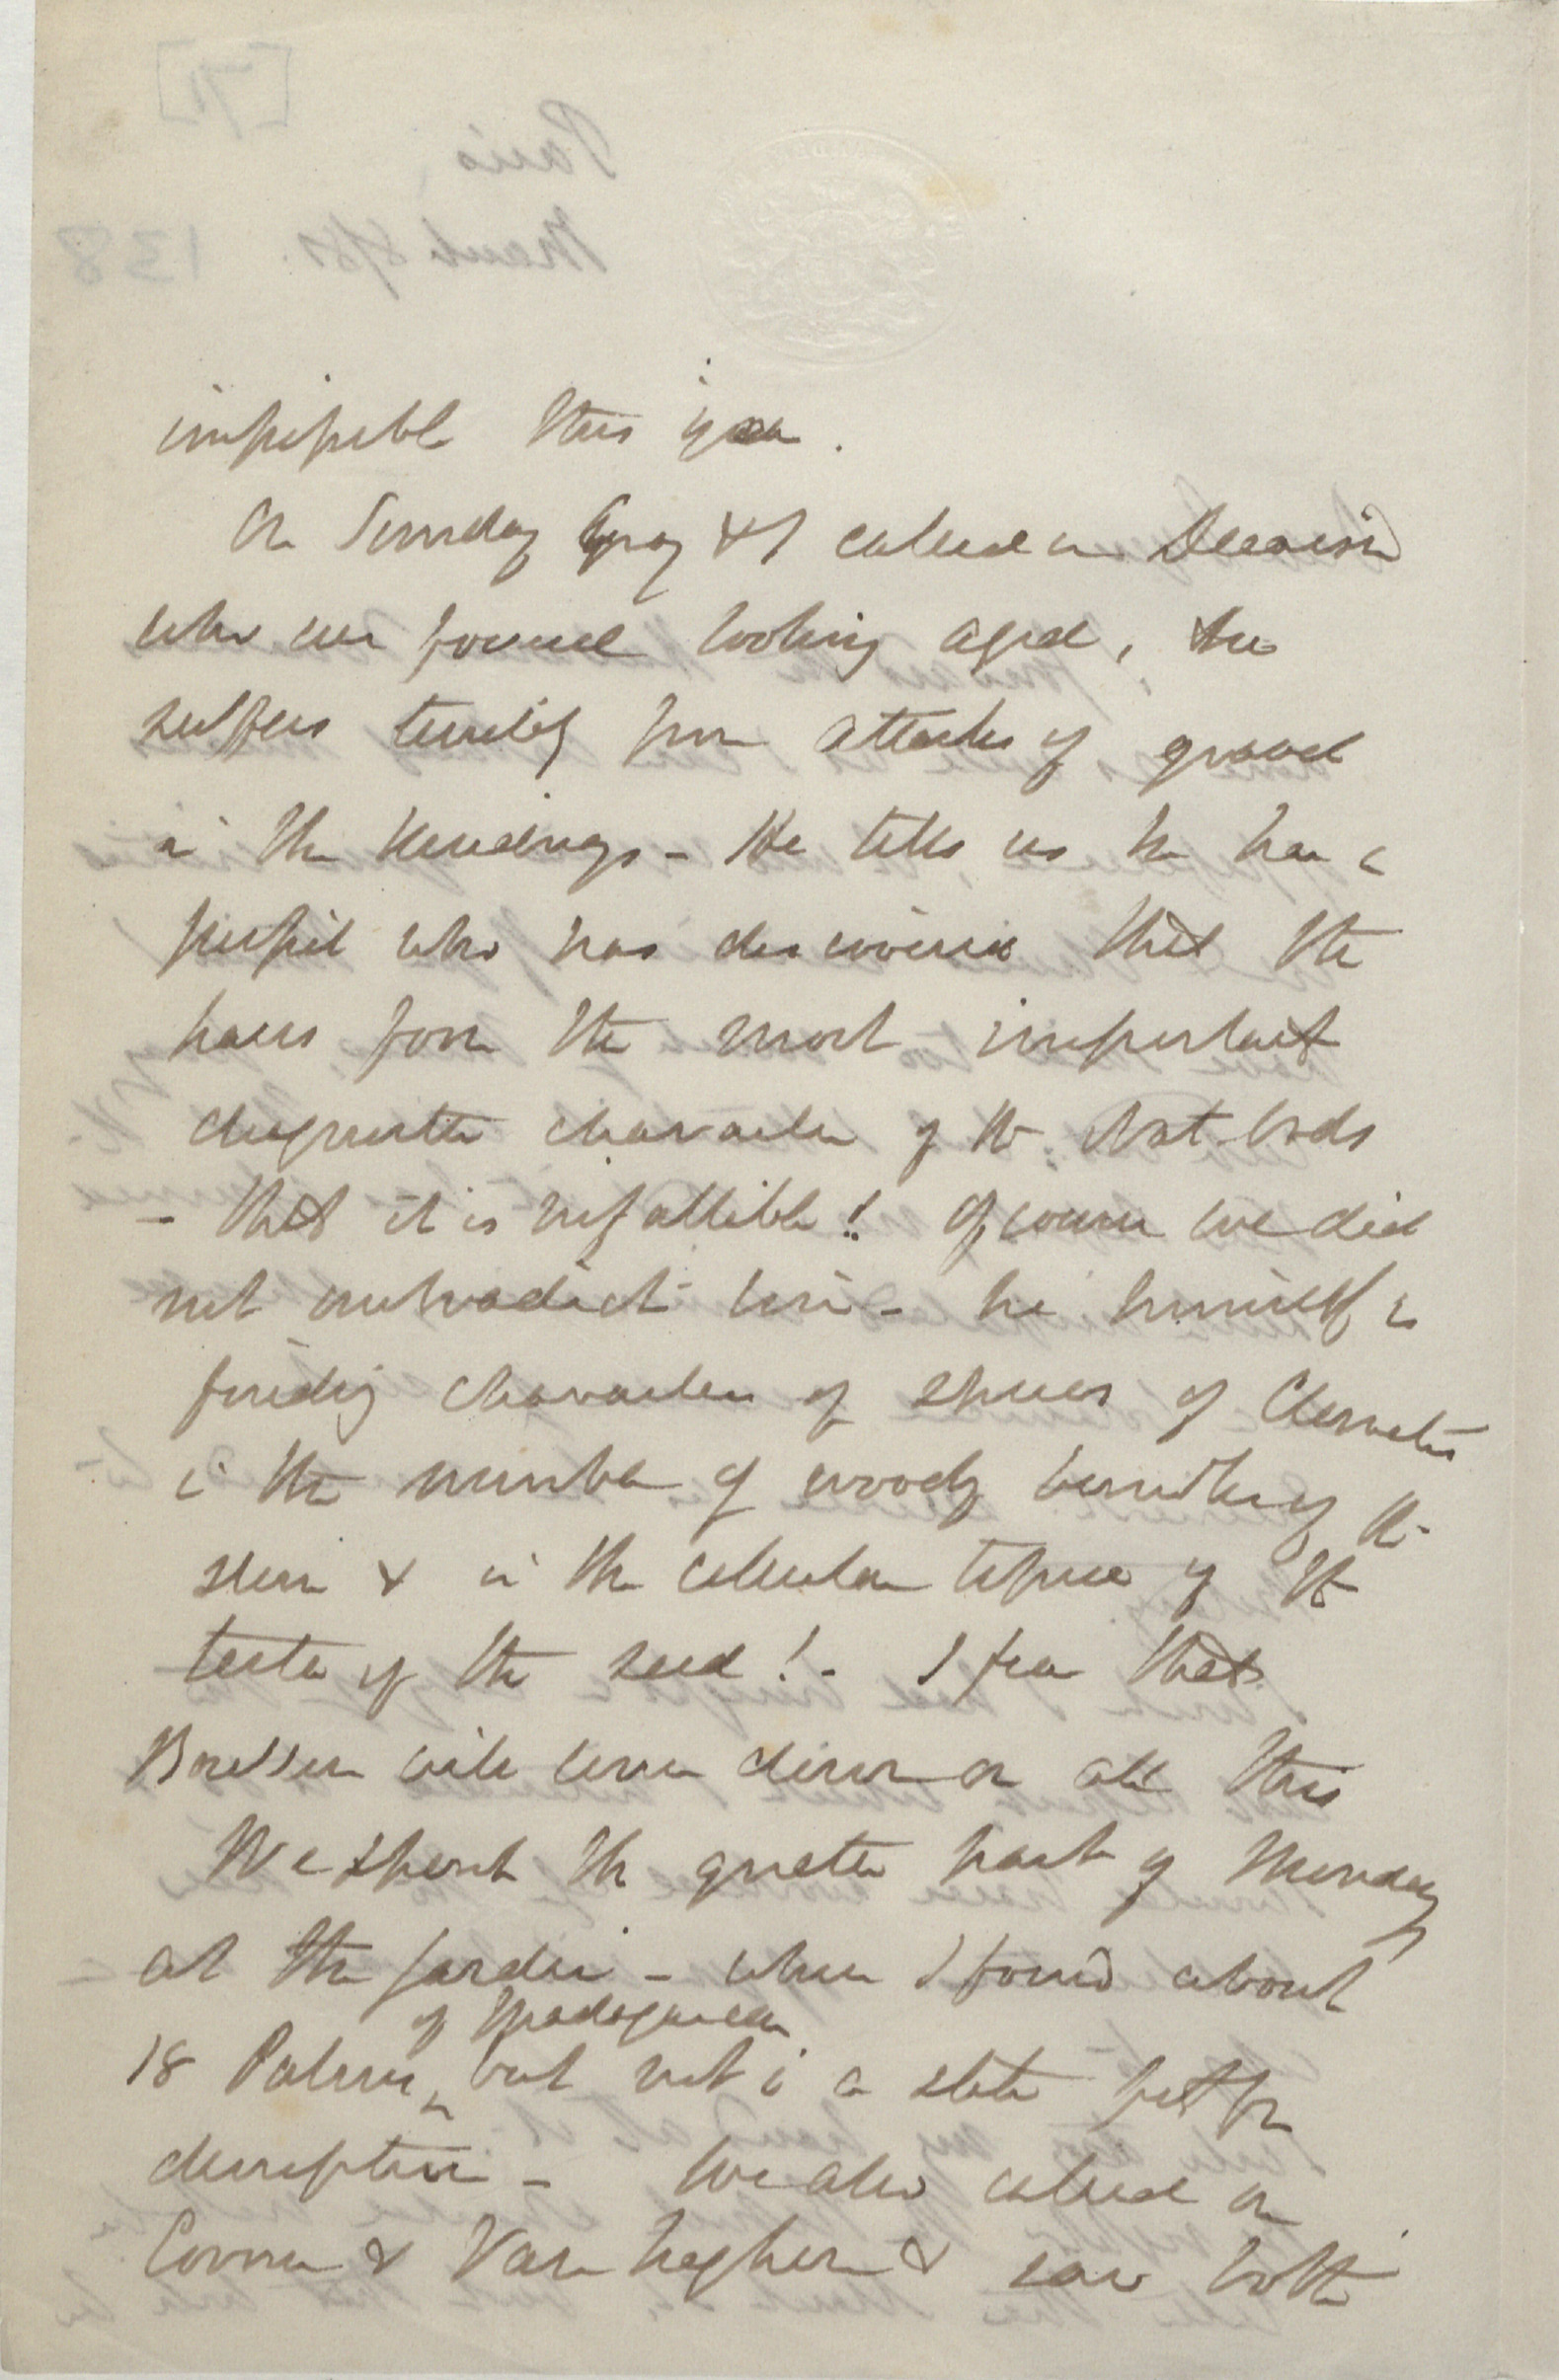 impossible this year.
On Sunday Gray & I called on Decaisne
who we found looking aged, he
suffers terribly from attacks of gravel
in the kidneys - He tells us he has a
pupil who has discovered that the
hairs form the most important
diagnostic character of the Nat. Ords
- that it is infallible! Of course we did
not contradict him - he himself is
finding characters of species of Clematis
in the number of woody bundles of the
stem & in the cellular tissue of the
testa of the seed! - I fear that
will come down on all this
We spent the greater part of Monday
at the Jardin - where I found about
18 Palms of Madagascar, but not in a state fit for
description - We also called on
Cornu & Van Tieghem & saw both
Paris
March 8/81.
138
[71]